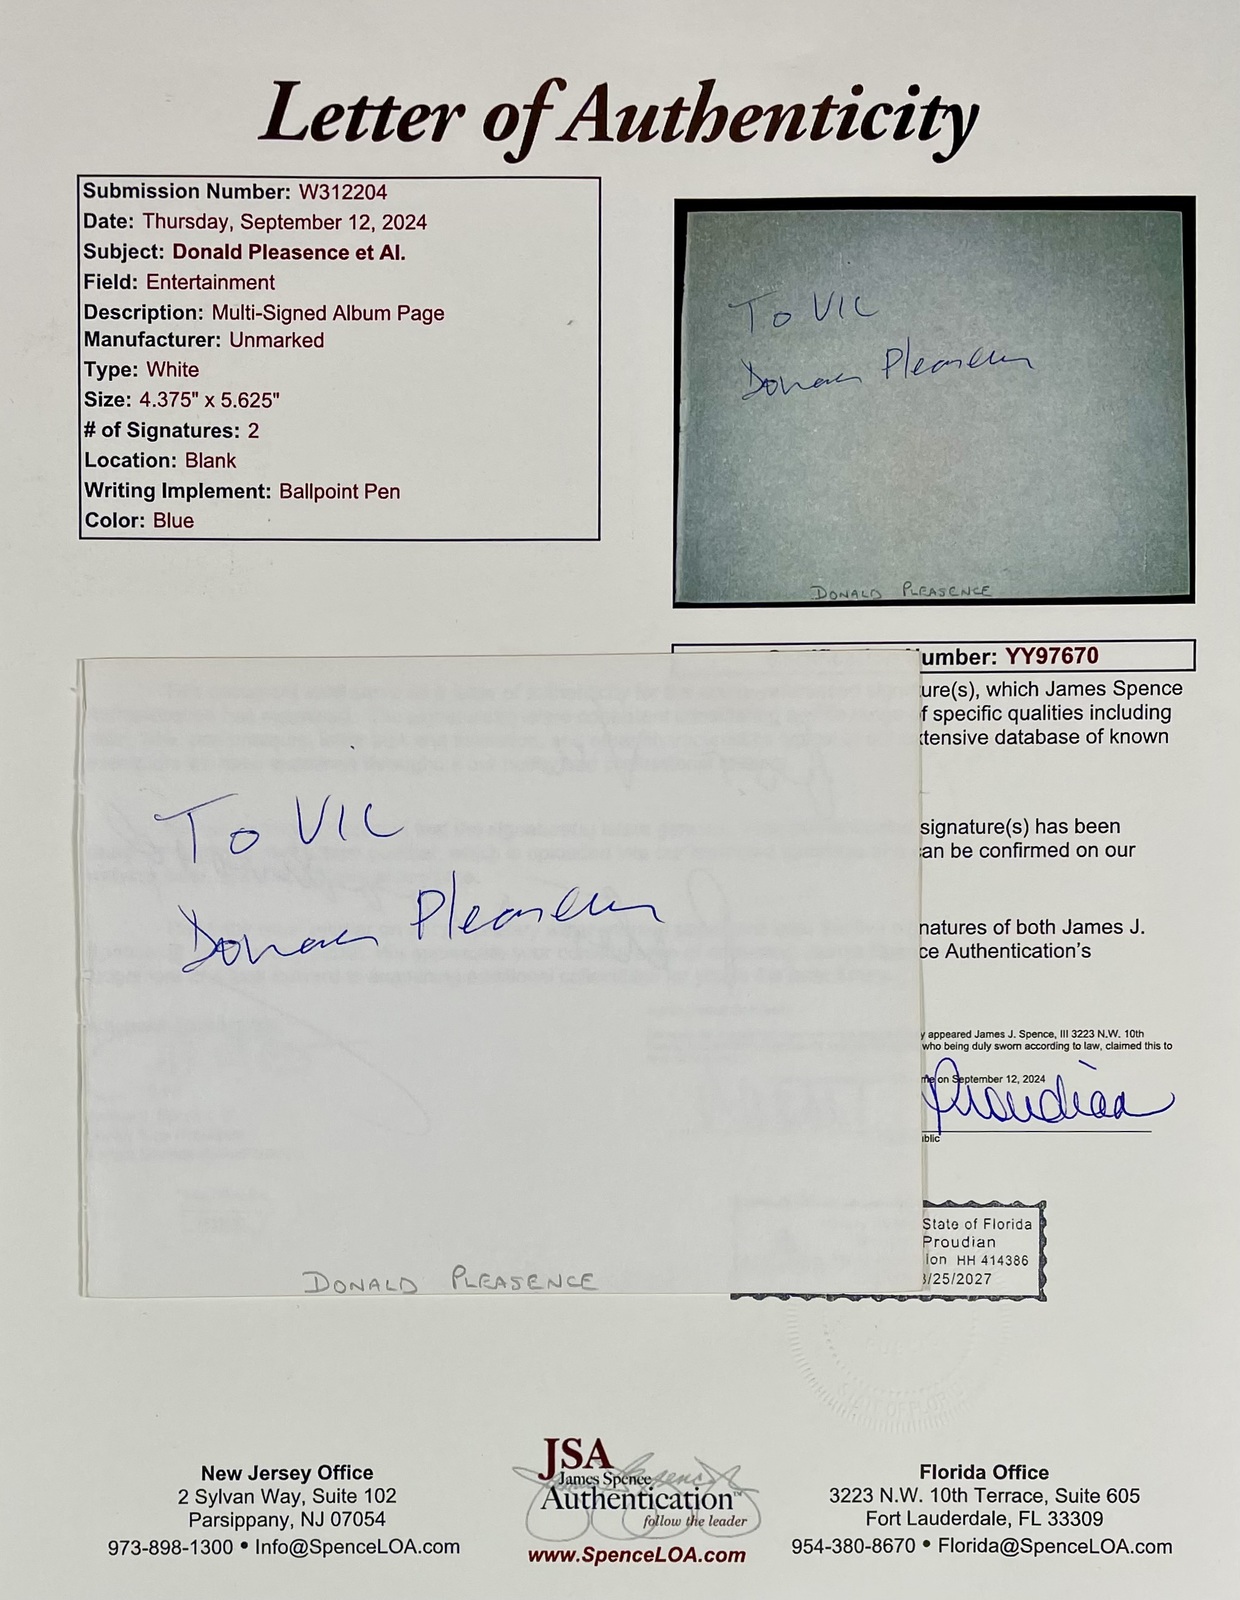 Letter of Authenticity
Submission Number: W312204
Date: Thursday, September 12, 2024
Subject: Donald Pleasence et Al.
Field: Entertainment
Description: Multi-Signed Album Page
Manufacturer: Unmarked
Type: White
Size: 4.375" x 5.625"
# of Signatures: 2
Location: Blank
Writing Implement: Ballpoint Pen
Color: Blue
To VIC
Donald Pleasence
DONALD PLEASENCE
umber: YY97670
ure(s), which James Spence
f specific qualities including
tensive database of known
signature(s) has been
an be confirmed on our
natures of both James J.
ce Authentication's
y appeared James J. Spence, III 3223 N.W. 10th
who being duly sworn according to law, claimed this to
me on September 12, 2024
Proudian
blic
State of Florida
Proudian
ion HH 414386
/25/2027
To VIC
Donald Pleasence
DONALD PLEASENCE
New Jersey Office
2 Sylvan Way, Suite 102
Parsippany, NJ 07054
973-898-1300 • Info@SpenceLOA.com
JSA
James Spence
Authentication™
follow the leader
www.SpenceLOA.com
Florida Office
3223 N.W. 10th Terrace, Suite 605
Fort Lauderdale, FL 33309
954-380-8670 • Florida@SpenceLOA.com